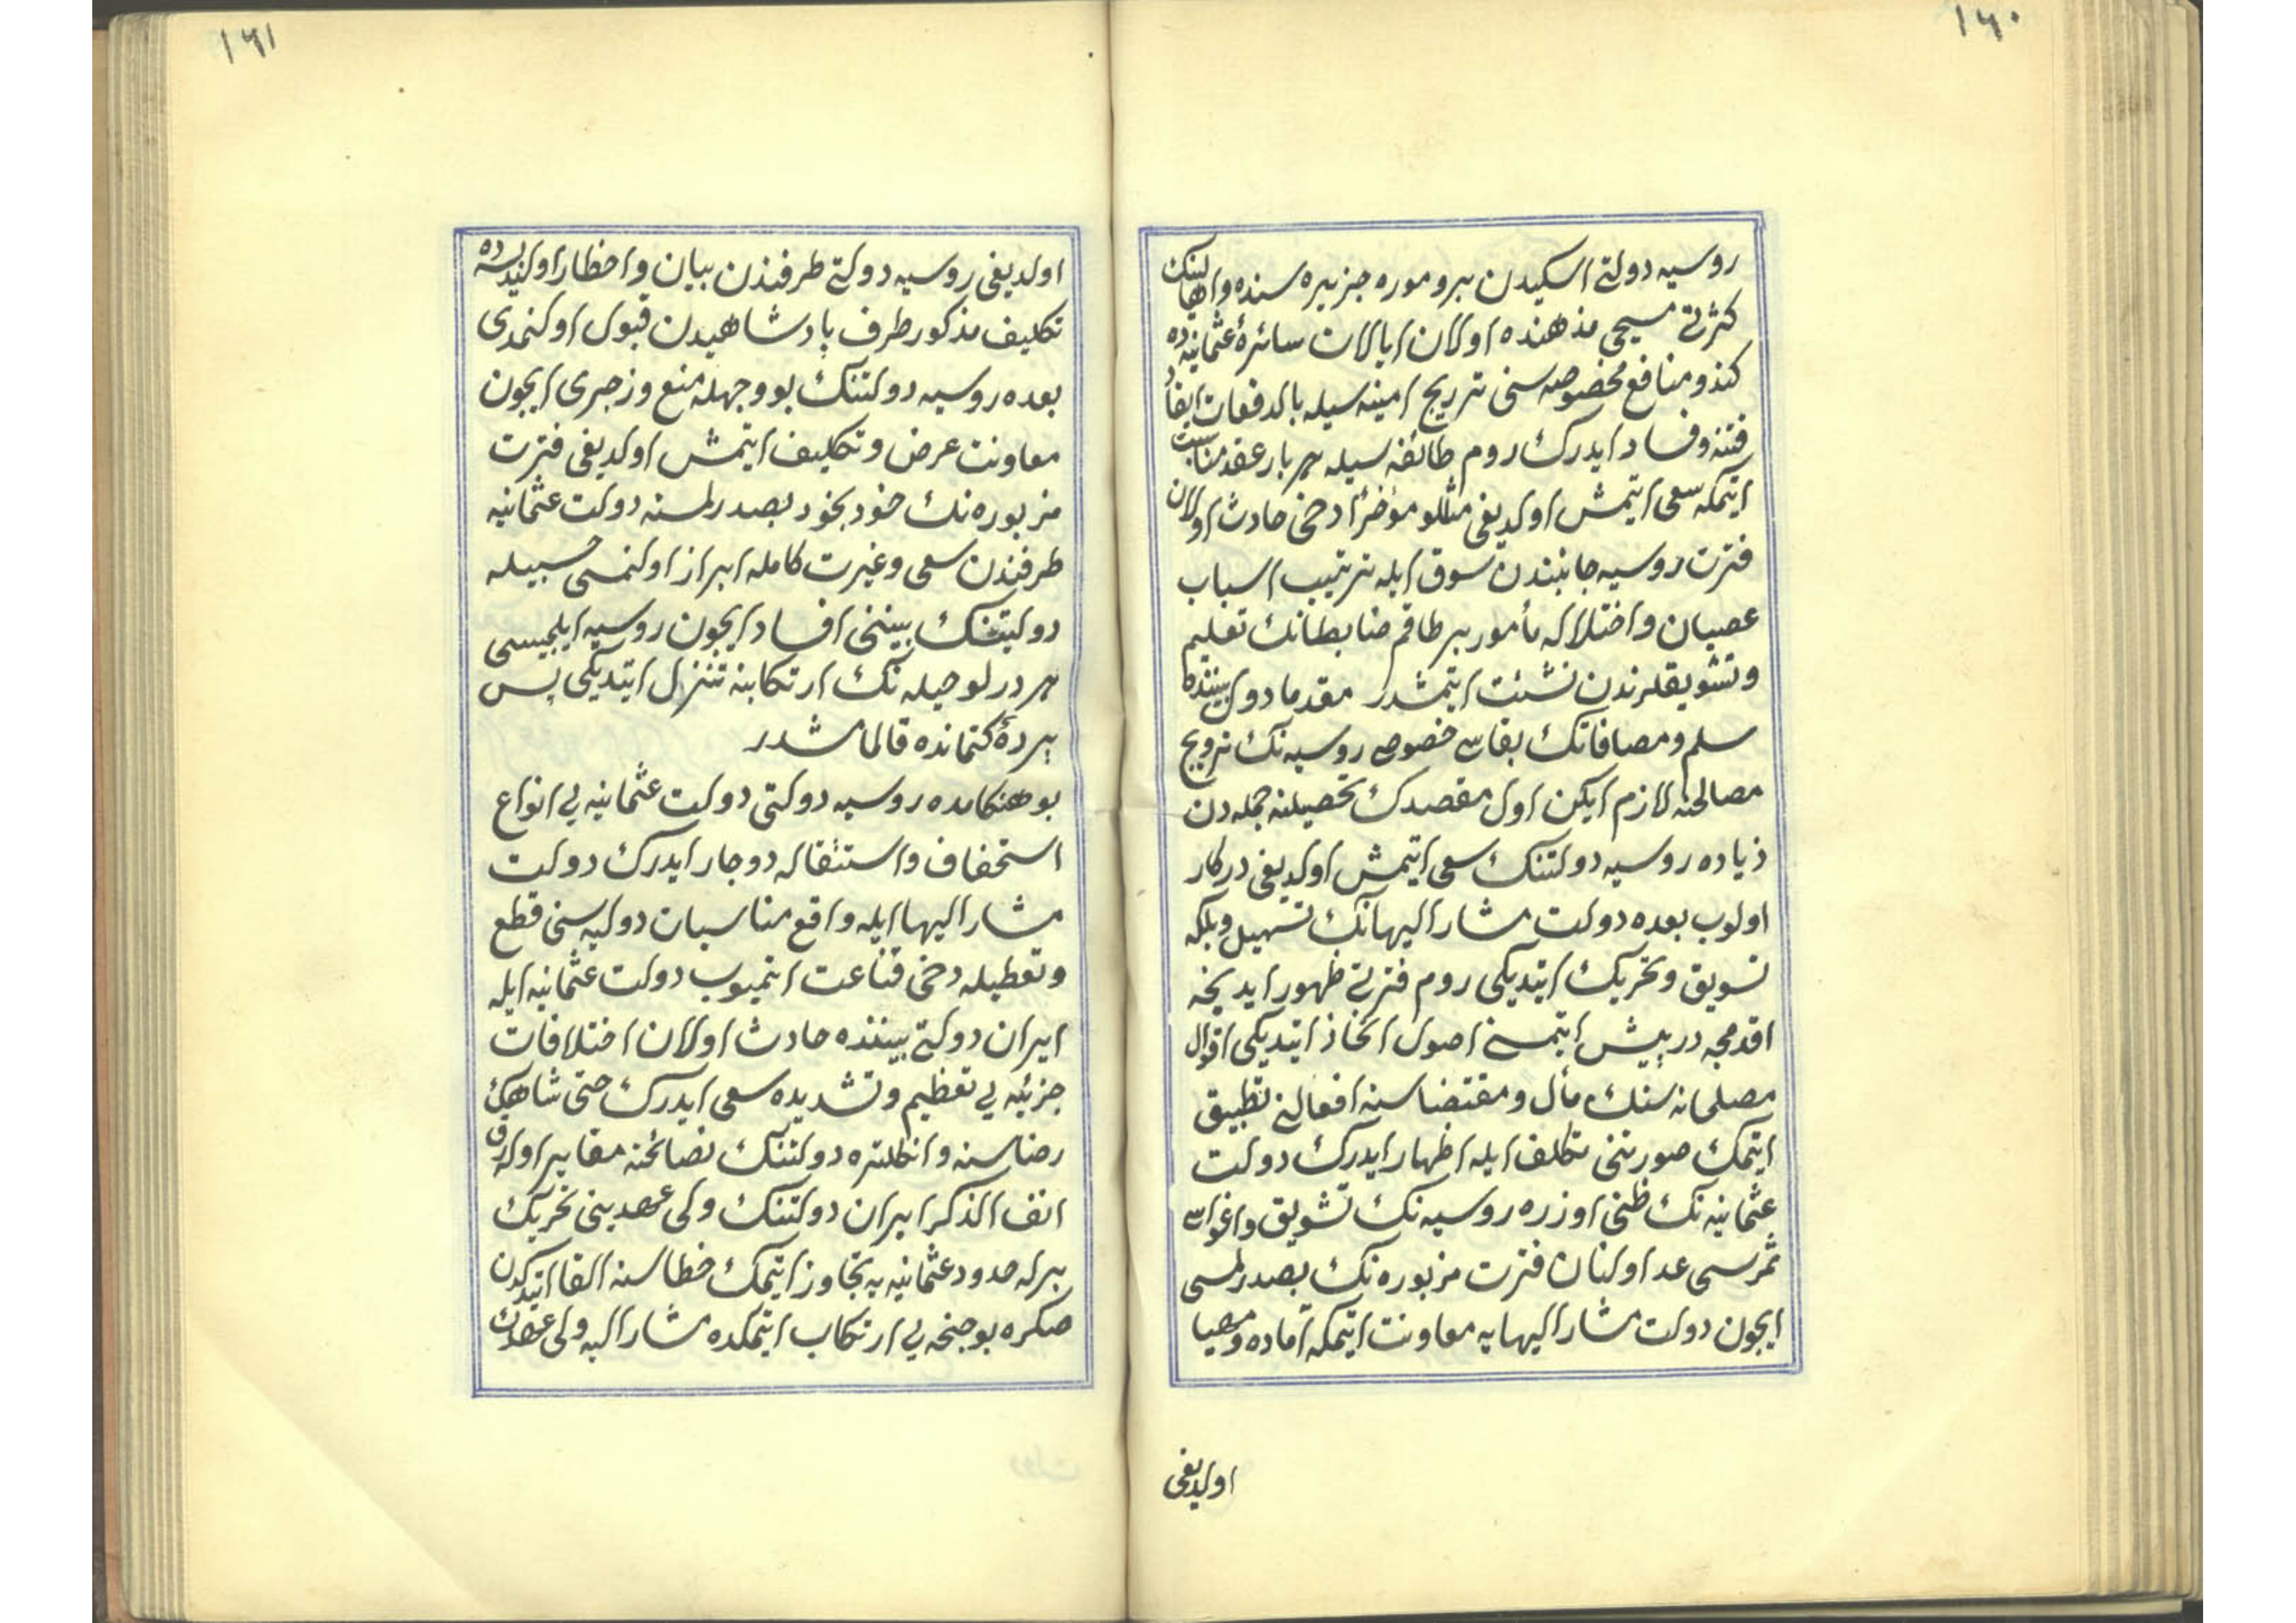 ١٦٠
روسیه دولتی اسکیدن برو موره جزیره سنده و اهالینك
کثرتی مسیحی مذهنده اولان ایالات سائرۀ عثمانیه ده
کندو منافع مخصوصه سنی ترویج امنیه سیله بالدفعات ایقاد
فتنه و فساد ایدرك روم طائفه سیله هر بار عقد مناسبت
ایتمکه سعی ایتمش اولدیغی مثللو مؤخراً دخی حادث اولان
فترت روسیه جانبندن سوق ایله ترتیب اسباب
عصیان و اختلاله مأمور بر طاقم ضابطانك تعلیم
و تشویقلرندن نشئت ایتمشدر مقدما دول بیننده
سلم و مصافاتك بقاسی خصوصی روسیه نك ترویج
مصالحنه لازم ایکن اول مقصدك تحصیلنه جمله دن
زیاده روسیه دولتنك سعی ایتمش اولدیغی درکار
اولوب بعده دولت مشار الیهانك تسهیل و بلکه
تسویق و تحریك ایتدیکی روم فترتی ظهور ایدیجه
اقدمجه در پیش ایتمسنی اصول اتخاذ ایتدیکی اقوال
مصلحانه سنك مأل و مقتضاسنه افعالنی تطبیق
ایتمك صورتنی تکلف ایله اظهار ایدرك دولت
عثمانیه نك ظنی اوزره روسیه نك تشویق و اغواسی
ثمره سی عد اولنان فترت مزبوره نك بصدرلمسی
ایچون دولت مشار الیهایه معاونت ایتمکه آماده و مهیا
اولدیغی
١٦١
اولدیغی روسیه دولتی طرفندن بیان و اخطار اولندیسه ده
تکلیف مذکور طرف پادشاهیدن قبول اولنمدی
بعده روسیه دولتنك بو وجهله منع و زجری ایچون
معاونت عرض و تکلیف ایتمش اولدیغی فترت
مزبوره نك خود بخود بصدرلمسنه دولت عثمانیه
طرفندن سعی و غیرت کامله ابراز اولنمسی حسبیله
دولتینك بیننی افساد ایچون روسیه ایلچیسی
هر درلو حیله نك ارتکابنه تنزل ایتدیکی پس
پردۀ کتمانده قالمامشدر
بو هنکامده روسیه دولتی دولت عثمانیه یی انواع
استخفاف و استثقاله دوچار ایدرك دولت
مشار الیها ایله واقع مناسبات دولیه سنی قطع
و تعطیله دخی قناعت ایتمیوب دولت عثمانیه ایله
ایران دولتی بیننده حادث اولان اختلافات
جزئیه یی تعظیم و تشدیده سعی ایدرك حتی شاهك
رضاسنه و انکلتره دولتنك نصائحنه مغایر اوله رق
انف الذکر ایران دولتنك ولی عهدینی تحریك
برله حدود عثمانیه یه تجاوز ایتمك خطاسنه القا ایتدکدن
صکره بو جنحه یی ارتکاب ایتمکده مشار الیه ولی عهدك